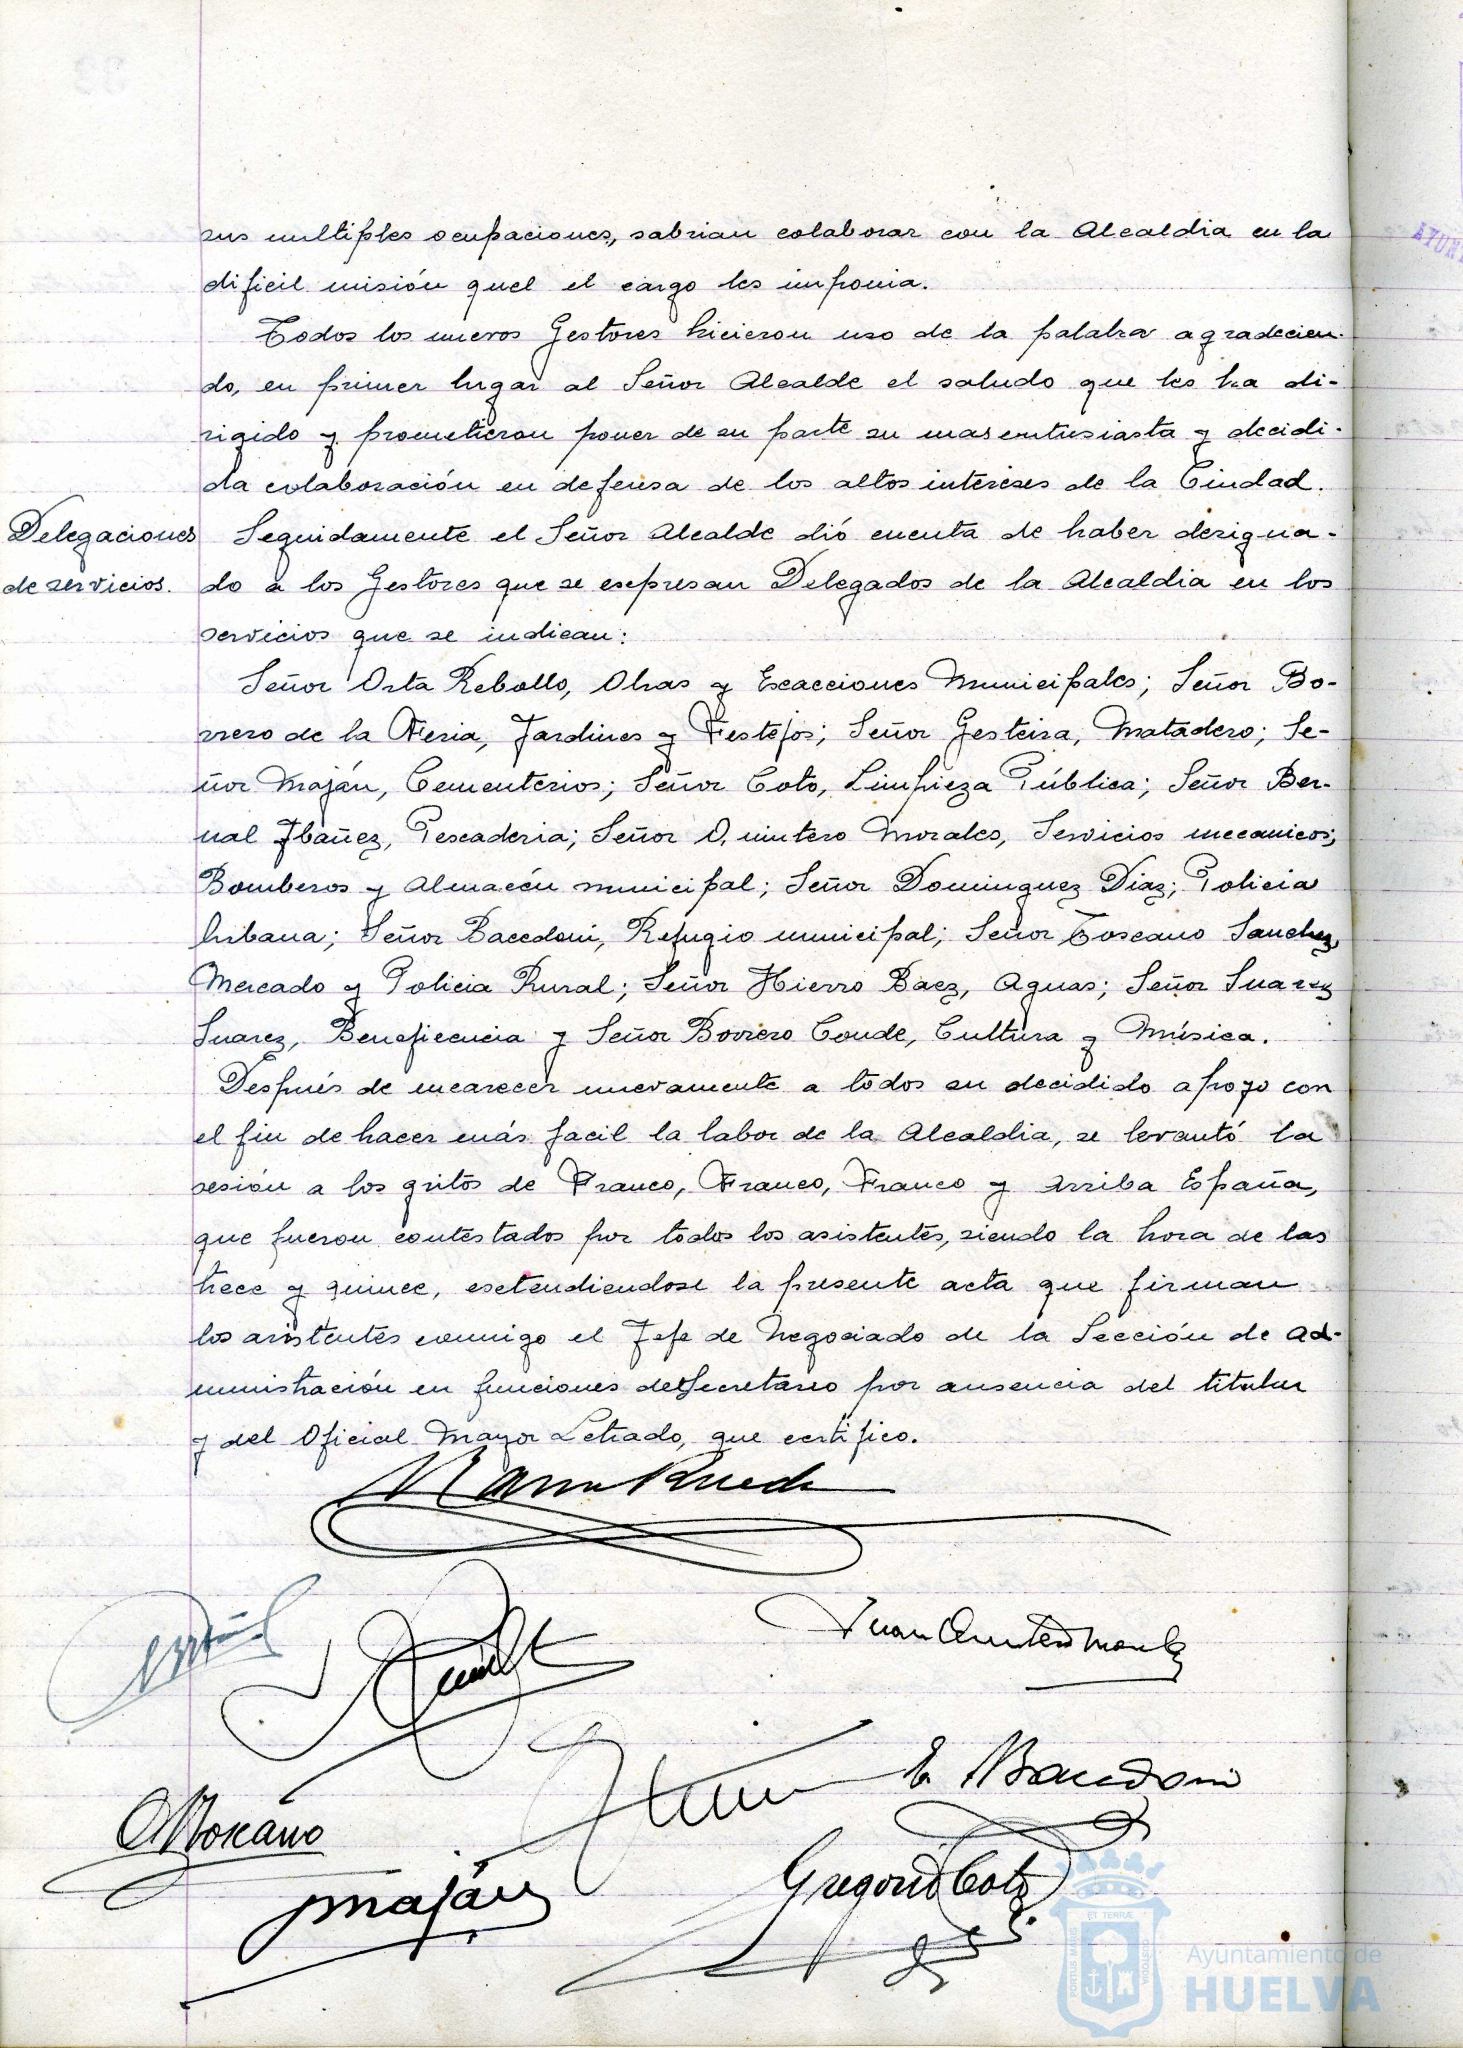 sus multiples ocupaciones, sabrian colaborar con la Alcaldia en la
dificil misión quel el cargo les imponia.
Todos los nuevos Gestores hicieron uso de la palabra agradecien-
do, en primer lugar al Señor Alcalde el saludo que les ha di-
rigido y prometieron poner de su parte su mas entusiasta y decidi-
da colaboración en defensa de los altos intereses de la Ciudad.
Delegaciones
de servicios.
Seguidamente el Señor Alcalde dió cuenta de haber designa-
do a los Gestores que se esepresan Delegados de la Alcaldia en los
servicios que se indican:
Señor Orta Rebollo, Obras y Exacciones Municipales; Señor Bo-
rrero de la Feria, Jardines y Festejos; Señor Gesteira, Matadero; Se-
ñor Maján, Cementerios; Señor Coto, Limpieza Pública; Señor Ber-
nal Ibañez, Pescaderia; Señor Quintero Morales, Servicios mecanicos,
Bomberos y Almacén municipal; Señor Dominguez Diaz; Policia
Urbana; Señor Bacedoni, Refugio municipal; Señor Toscano Sanchez,
Mercado y Policia Rural; Señor Hierro Baez, Aguas; Señor Suarez
Suarez, Beneficencia y Señor Borrero Conde, Cultura y Música.
Después de encarecer nuevamente a todos su decidido apoyo con
el fin de hacer más facil la labor de la Alcaldia, se levantó la
sesión a los gritos de Franco, Franco, Franco y Arriba España,
que fueron contestados por todos los asistentes, siendo la hora de las
trece y quince, esetendiendose la presente acta que firman
los asistentes conmigo el Jefe de Negociado de la Sección de Ad-
ministración en funciones de Secretario por ausencia del titular
y del Oficial Mayor Letrado, que certifico.
Juan Quintero Morales
E. Bacedoni
Toscano
Gregorio Coto
Maján
PORTUS MARIS ET TERRÆ CUSTODIA
Ayuntamiento de
HUELVA